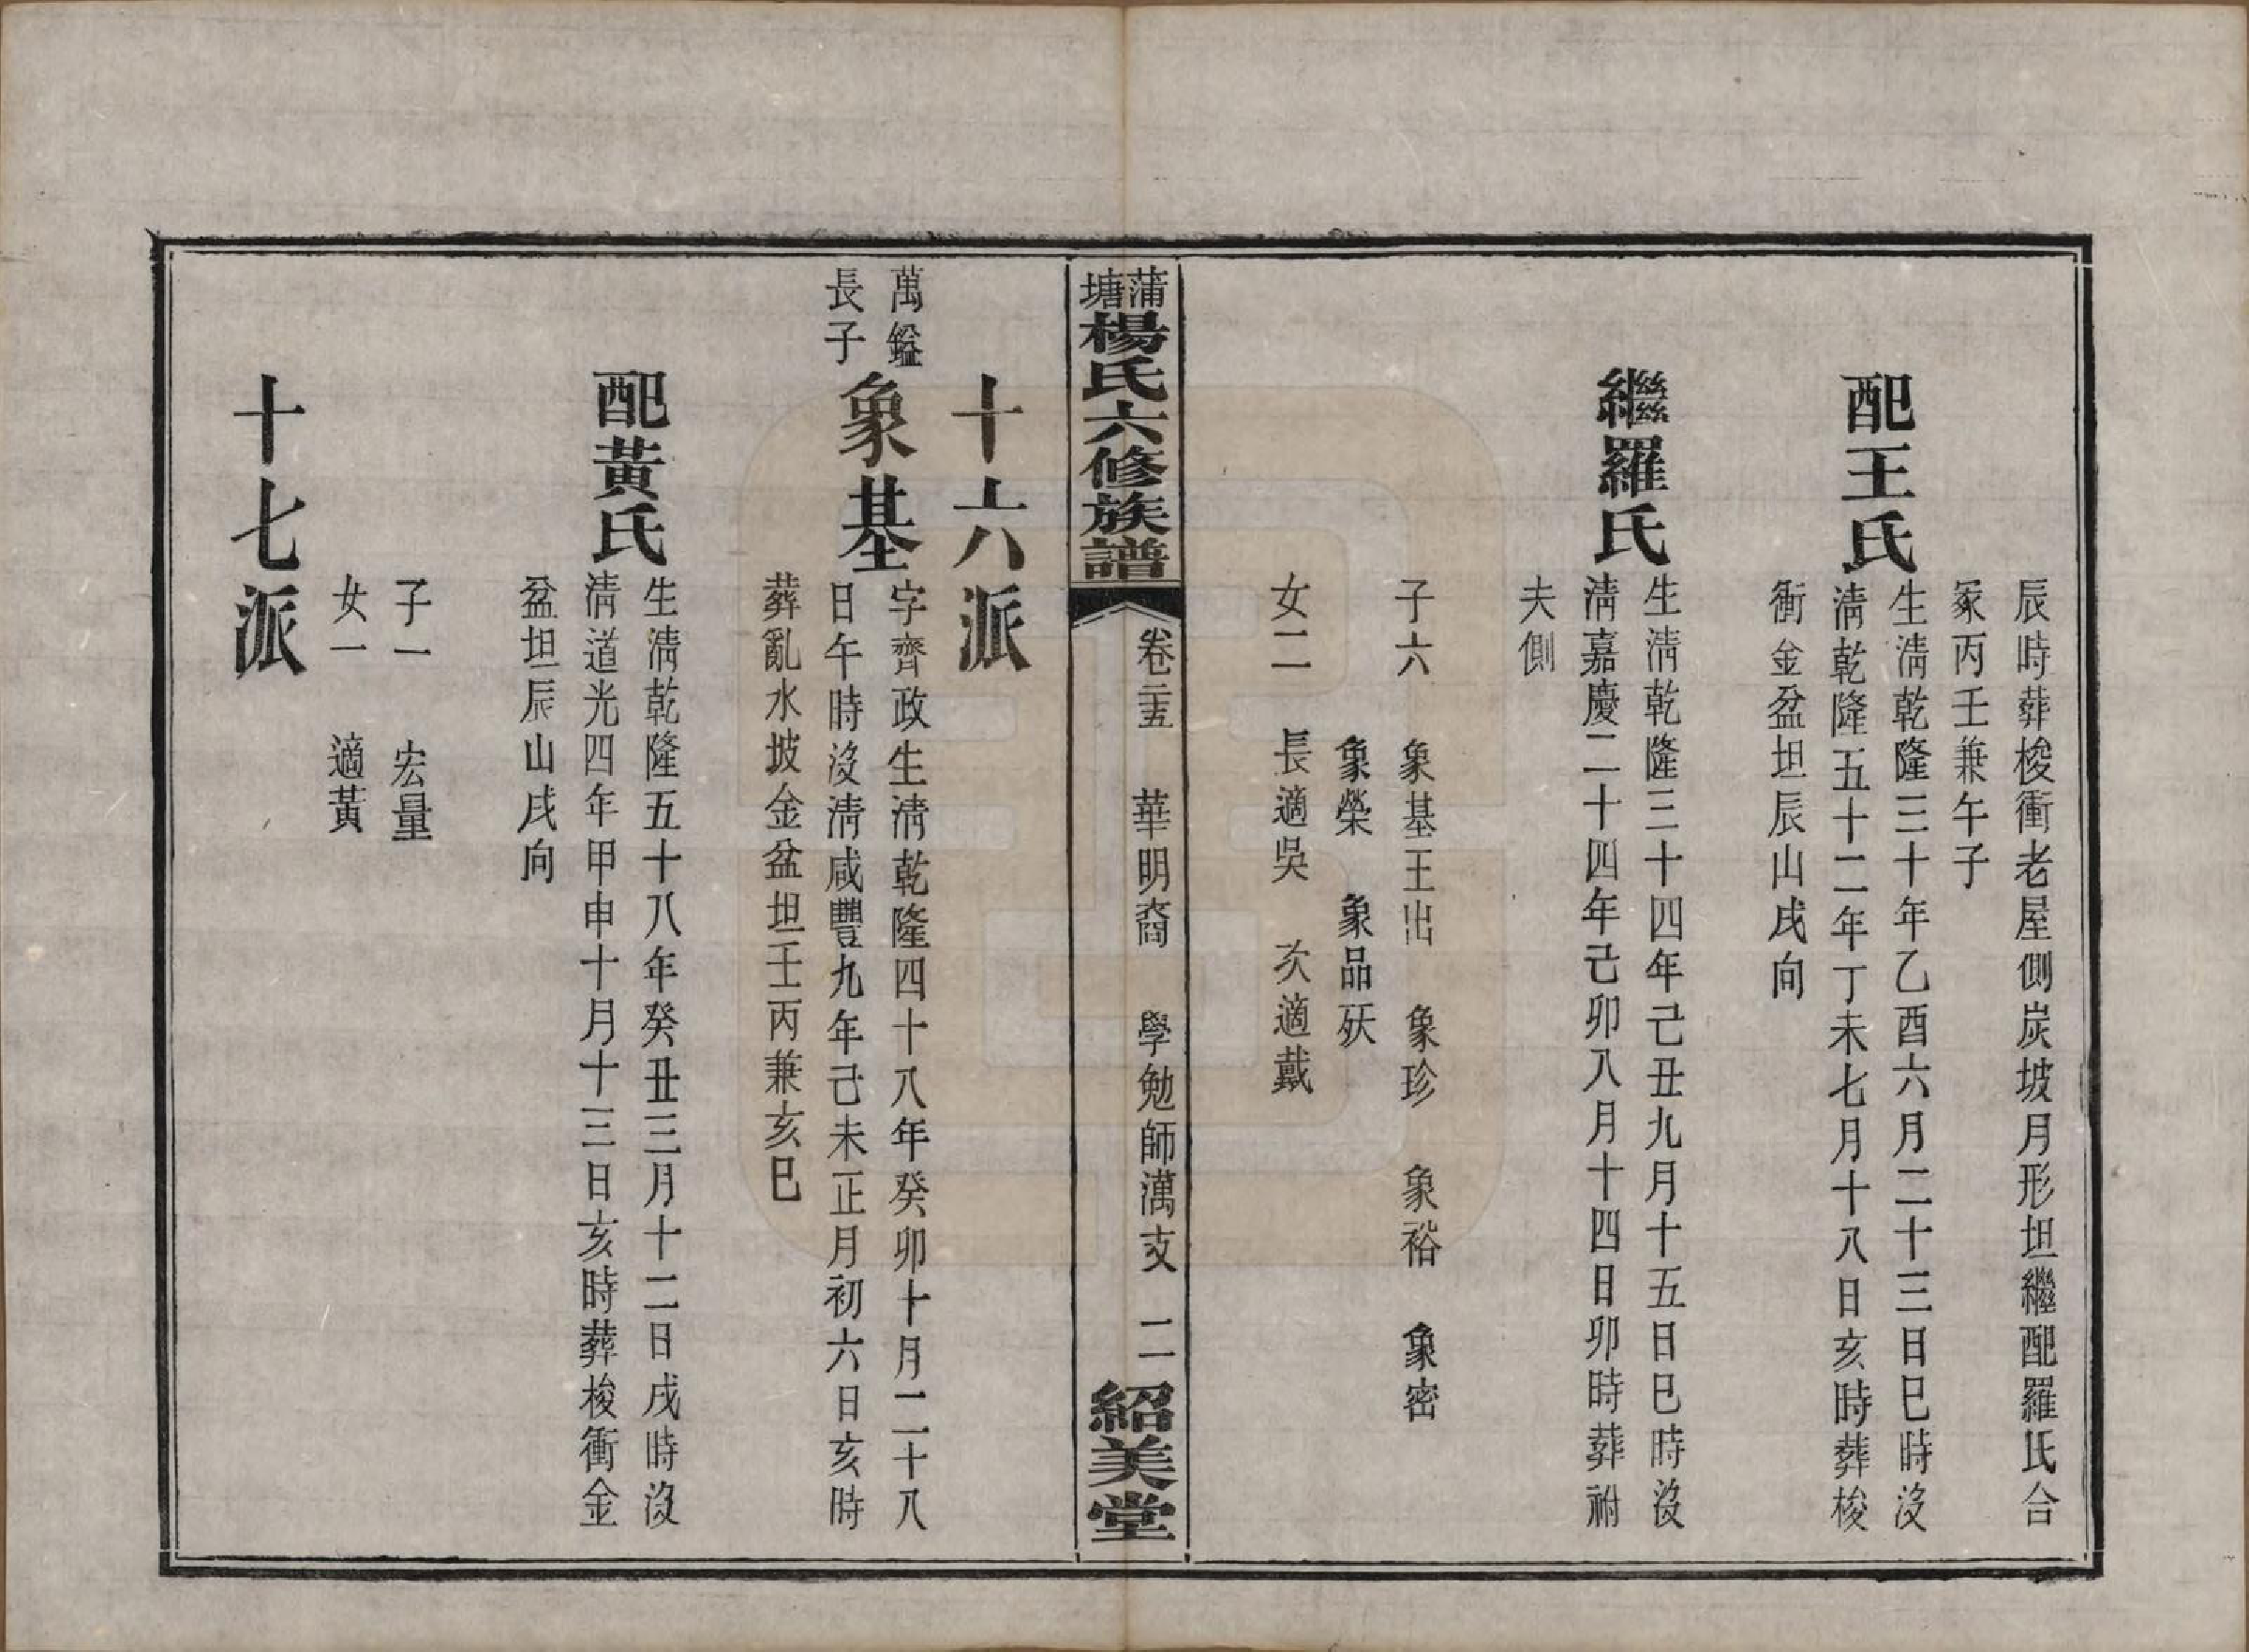 辰時葬梭衝老屋側炭坡月形坦繼配羅氏合
冢丙壬兼午子
配王氏
生淸乾隆三十年乙酉六月二十三日巳時沒
淸乾隆五十二年丁未七月十八日亥時葬梭
衝金盆坦辰山戌向
繼羅氏
生淸乾隆三十四年己丑九月十五日巳時沒
淸嘉慶二十四年己卯八月十四日卯時葬祔
夫側
子六 象基王出 象珍 象裕 象密
象榮 象品殀
女二 長適吳 次適戴
蒲塘楊氏六修族譜 卷二十五 華明裔 學勉師澫支 二 紹美堂
十六派
萬鎰
長子
象基
字齊政生淸乾隆四十八年癸卯十月二十八
日午時沒淸咸豐九年己未正月初六日亥時
葬亂水坡金盆坦壬丙兼亥巳
配黃氏
生淸乾隆五十八年癸丑三月十二日戌時沒
淸道光四年甲申十月十三日亥時葬梭衝金
盆坦辰山戌向
子一 宏量
女一 適黃
十七派